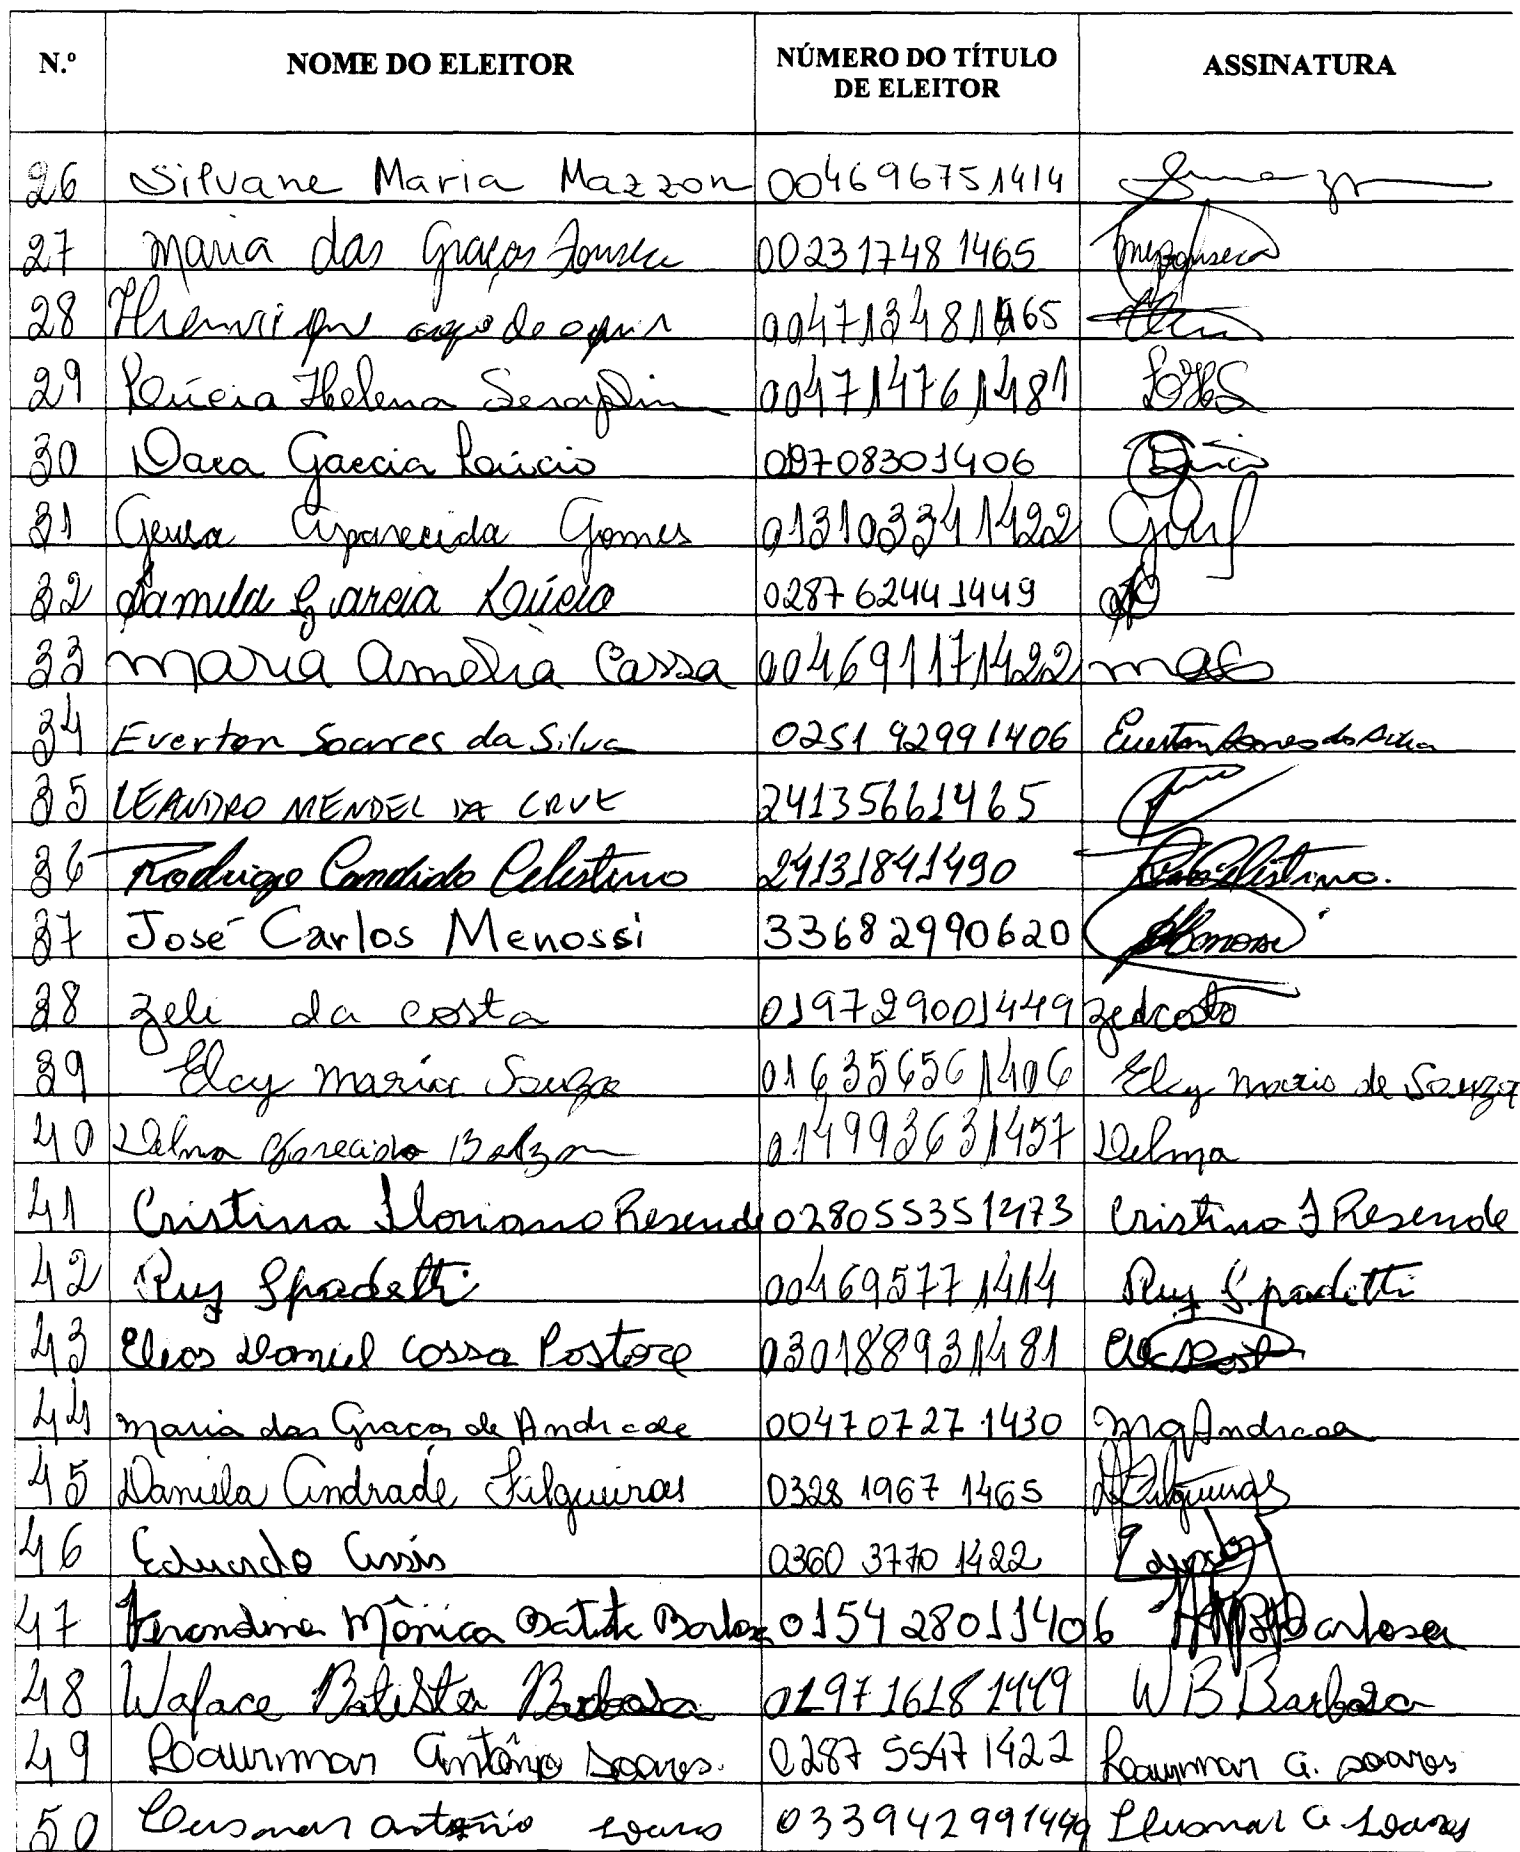 N.º NOME DO ELEITOR NÚMERO DO TÍTULO DE ELEITOR ASSINATURA
26 Silvane Maria Mazzon 004696751414
27 Maria das Graças Fonseca 002317481465
28 Henrique 004713481465
29 Lúcia Helena Serafim 004714761481 LHS
30 Dara Garcia Lúcio 09708301406
31 Geusa Aparecida Gomes 013103341422
32 Samila Garcia Lúcio 028762441449
33 Maria Amélia Cassa 004691171422 mac
34 Everton Soares da Silva 0251 92991406 Everton Soares da Silva
35 LEANDRO MENDEL DA CRUZ 24135661465
36 Rodrigo Candido Celestino 24131841490
37 José Carlos Menossi 33682990620
38 Zeli da costa 019729001449 zedcosta
39 Elcy Maria Souza 016356561406 Elcy Maria de Souza
40 Delma Aparecida Balzan 014993631457 Delma
41 Cristina Floriano Resende 028055351473 Cristina F Resende
42 Ruy Spadetti 004695771414 Ruy Spadetti
43 Elias Daniel Cassa Pastore 030188931481
44 Maria das Graças de Andrade 004707271430 MGAndrade
45 Daniela Andrade Filgueiras 0328 1967 1465 DFilgueiras
46 Eduardo Assis 0360 3770 1422
47 Mônica Batista Barbosa 0154 28011406 Barbosa
48 Walace Batista Barbosa 01971618 1449 W B Barbosa
49 Laurimar Antônio Soares. 0287 5547 1422 Laurimar A. Soares
50 Antônio Soares 033942991449 A Soares